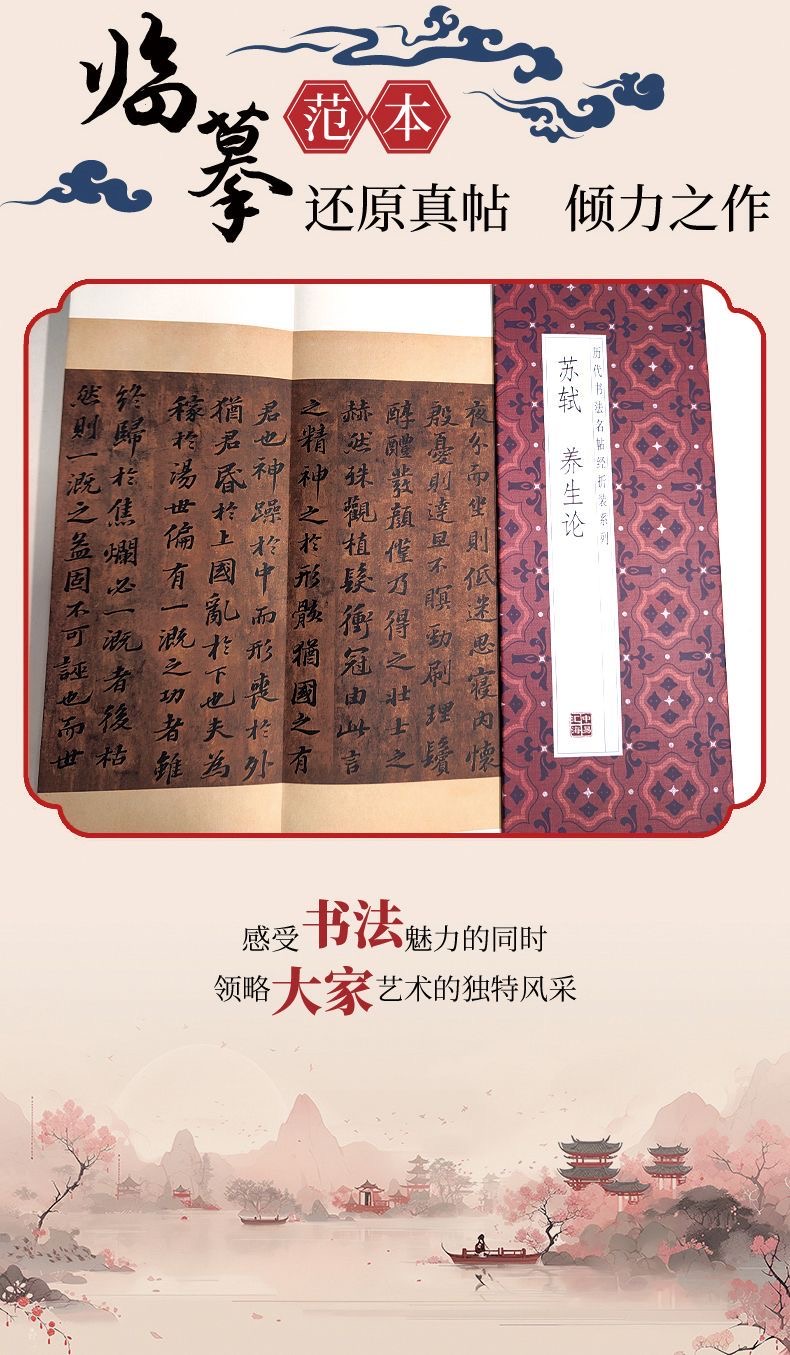 临摹
范本
还原真帖 倾力之作
夜分而坐則低迷思寢内懷
殷憂則達旦不瞑勁刷理鬢
醇醴發顏僅乃得之壯士之
赫然殊觀植髮衝冠由此言
之精神之於形骸猶國之有
君也神躁於中而形喪於外
猶君昏於上國亂於下也夫為
稼於湯世偏有一溉之功者雖
終歸於焦爛必一溉者後枯
然則一溉之益固不可誣也而世
历代书法名帖经折装系列
苏轼 养生论
感受书法魅力的同时
领略大家艺术的独特风采